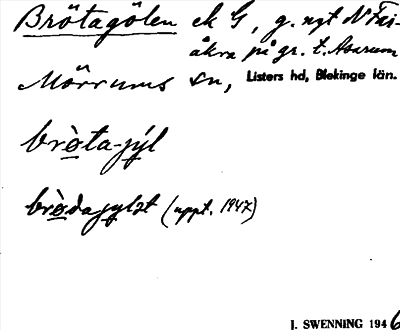 Brötagölen ek G, g. ngt N Fäi-
åkra på gr. t. Asarum
Mörrums sn, Listers hd, Blekinge län.
brò̲ta-jýl
brò̲dajylət (uppt. 1947)
J. SWENNING 1946